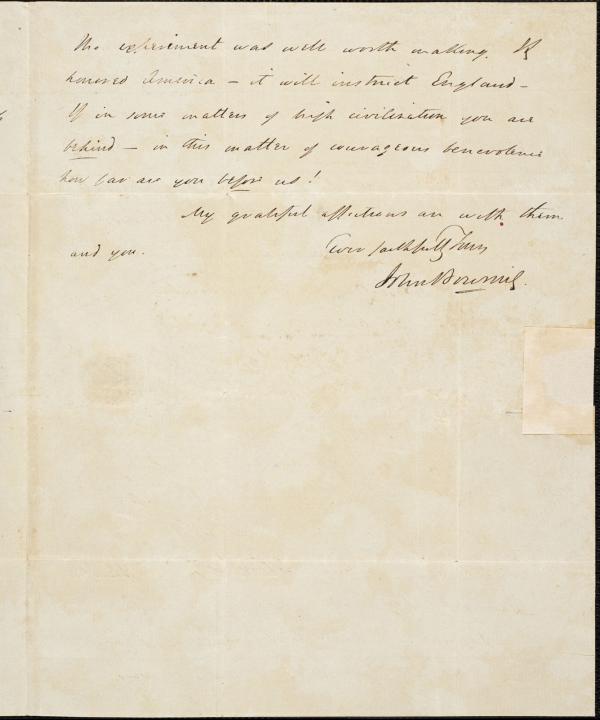 The experiment was well worth making. It
honored America – it will instruct England –
If in some matters of high civilization you are
behind – in this matter of courageous benevolence
how far are you before us!
My grateful affections are with them
and you. Ever faithfully Yours
John Bowring.